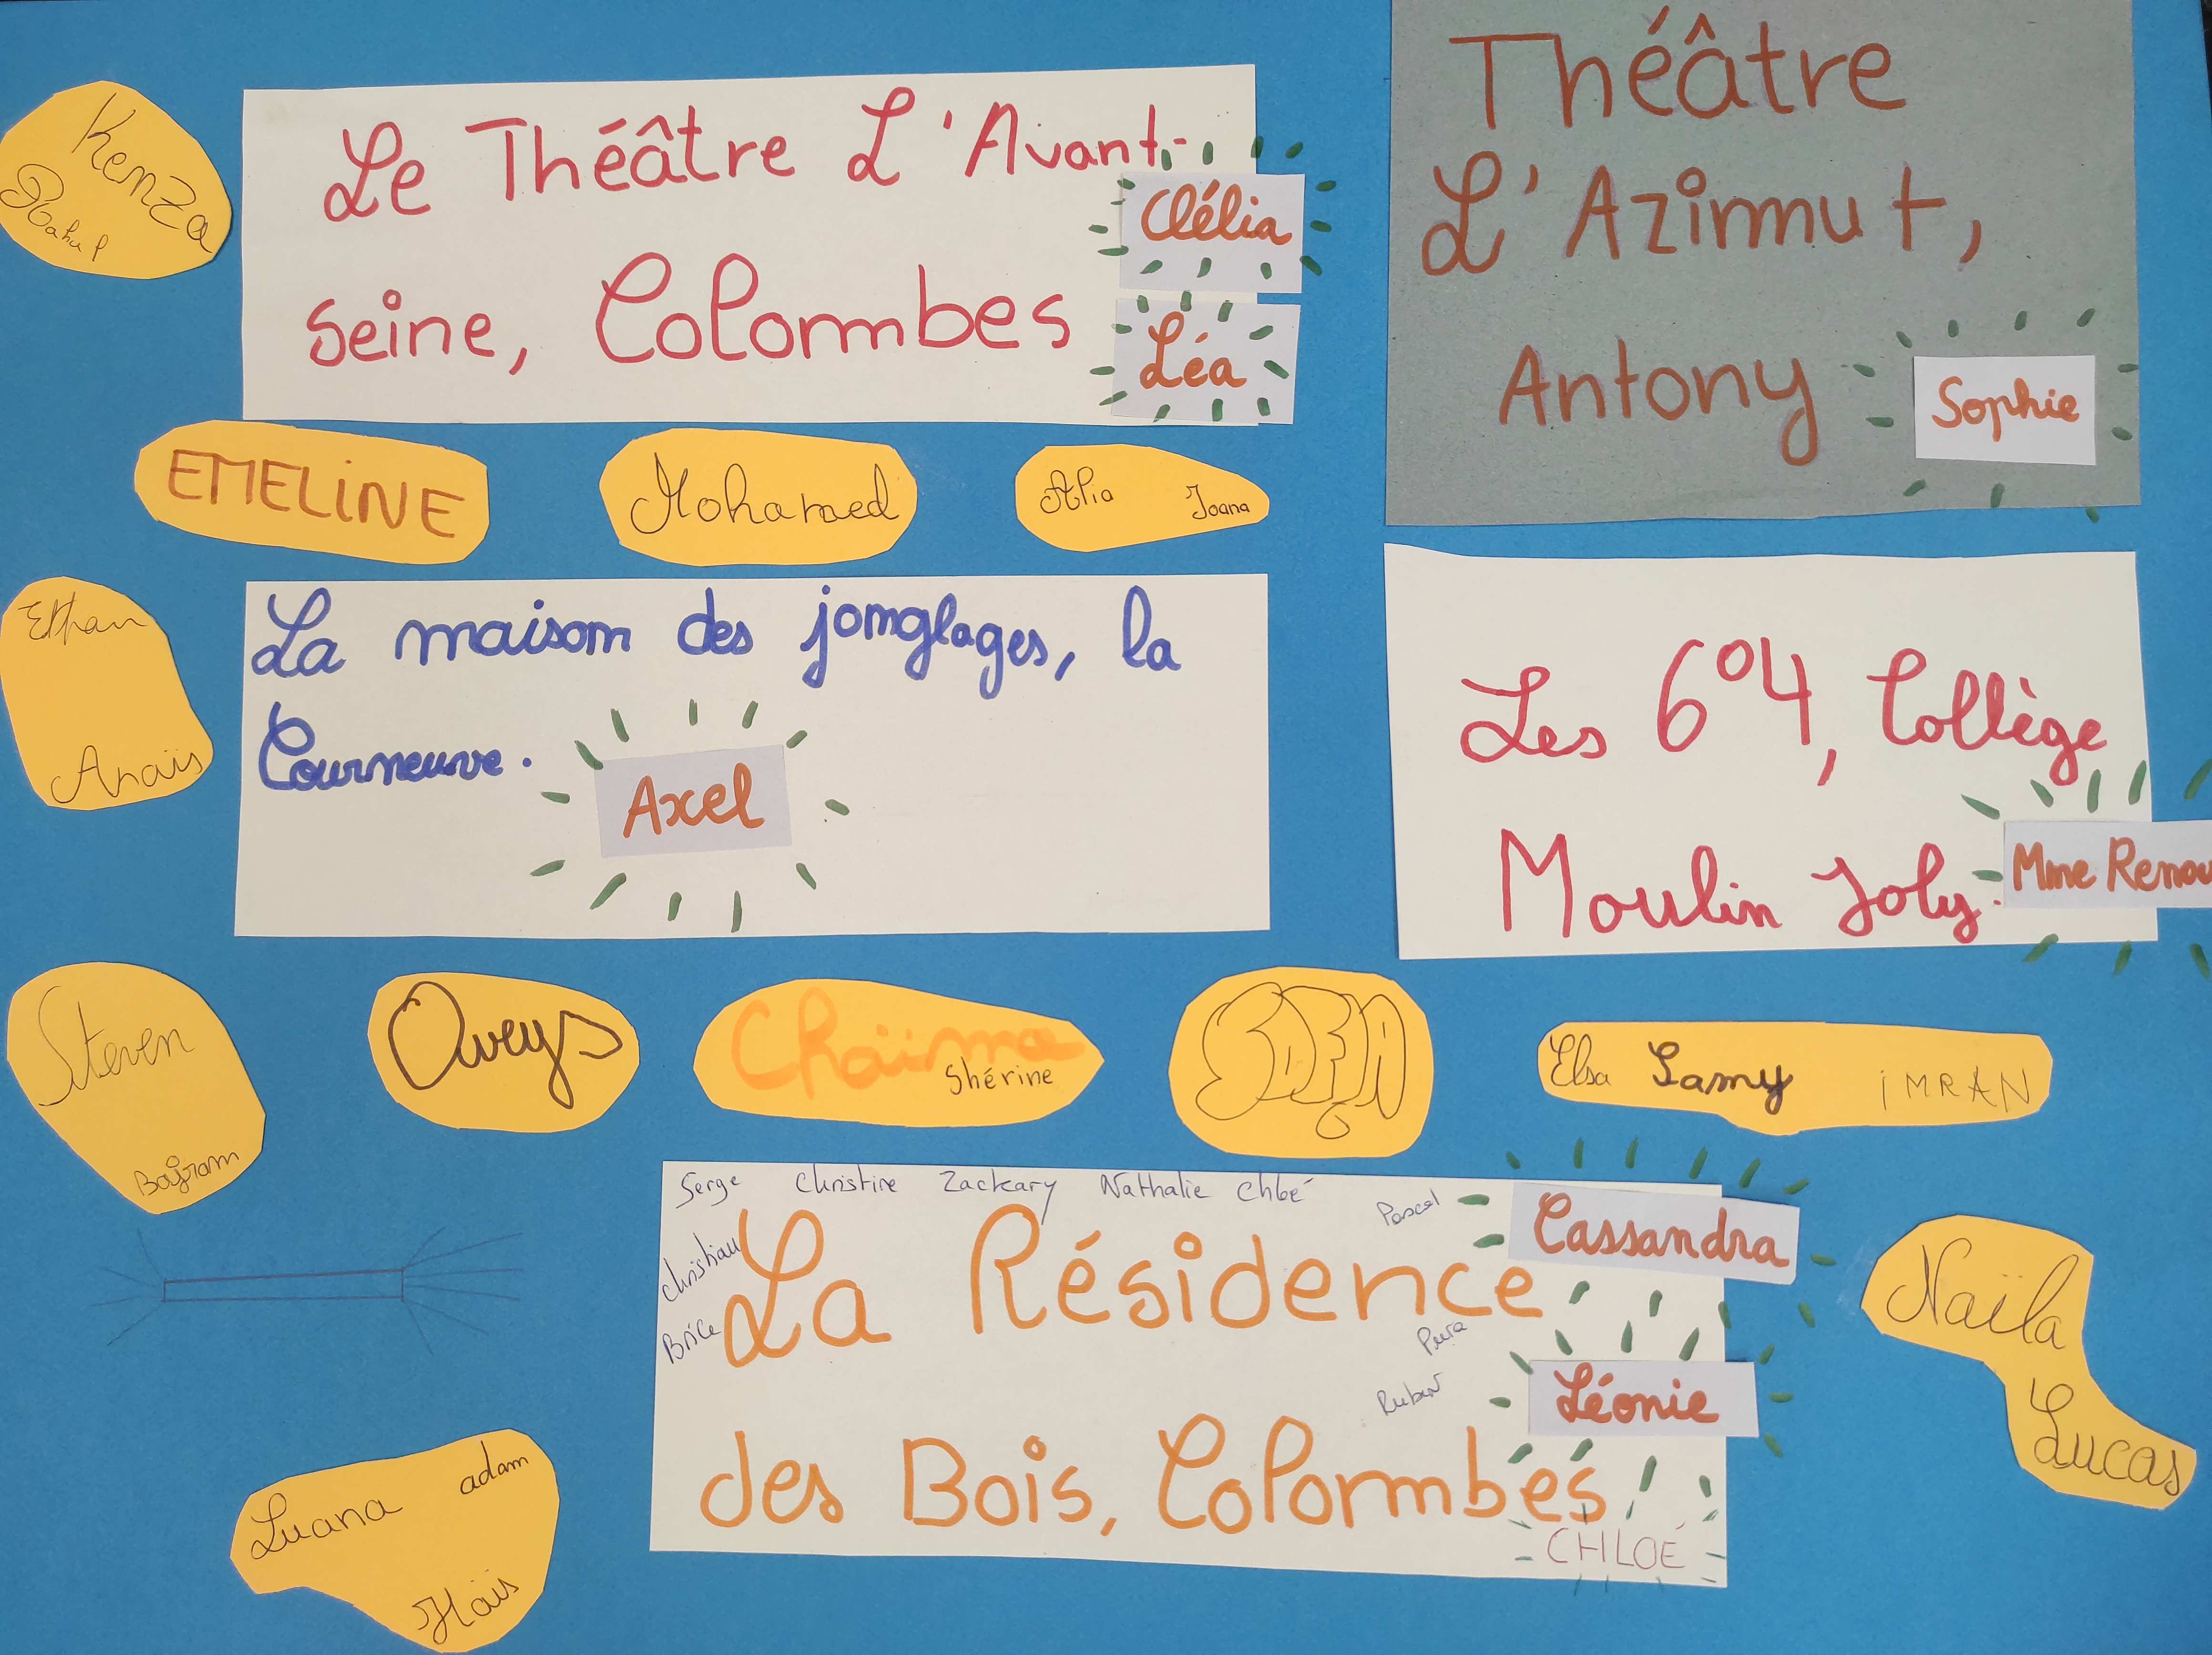 Kenza
Le Théâtre L'Avant-
seine, Colombes
Clélia
Léa
Théâtre
L'Azimut,
Antony
Sophie
EMELiNE
Mohamed
Alia Joana
Ethan
Anaïs
La maison des jonglages, la
Courneuve.
Axel
Les 6°4, Collège
Moulin Joly.
Mme Renou
Steven
Bajram
Oweys
Chaïma
Shérine
SOFIA
Elsa Samy iMRAN
Serge Christine Zackeary Nathalie Chloé
Pascal
Christian
Brice
La Résidence
des Bois, Colombes
Cassandra
Ruben
Léonie
CHLOÉ
Naïla
Lucas
Luana adam
Haïs